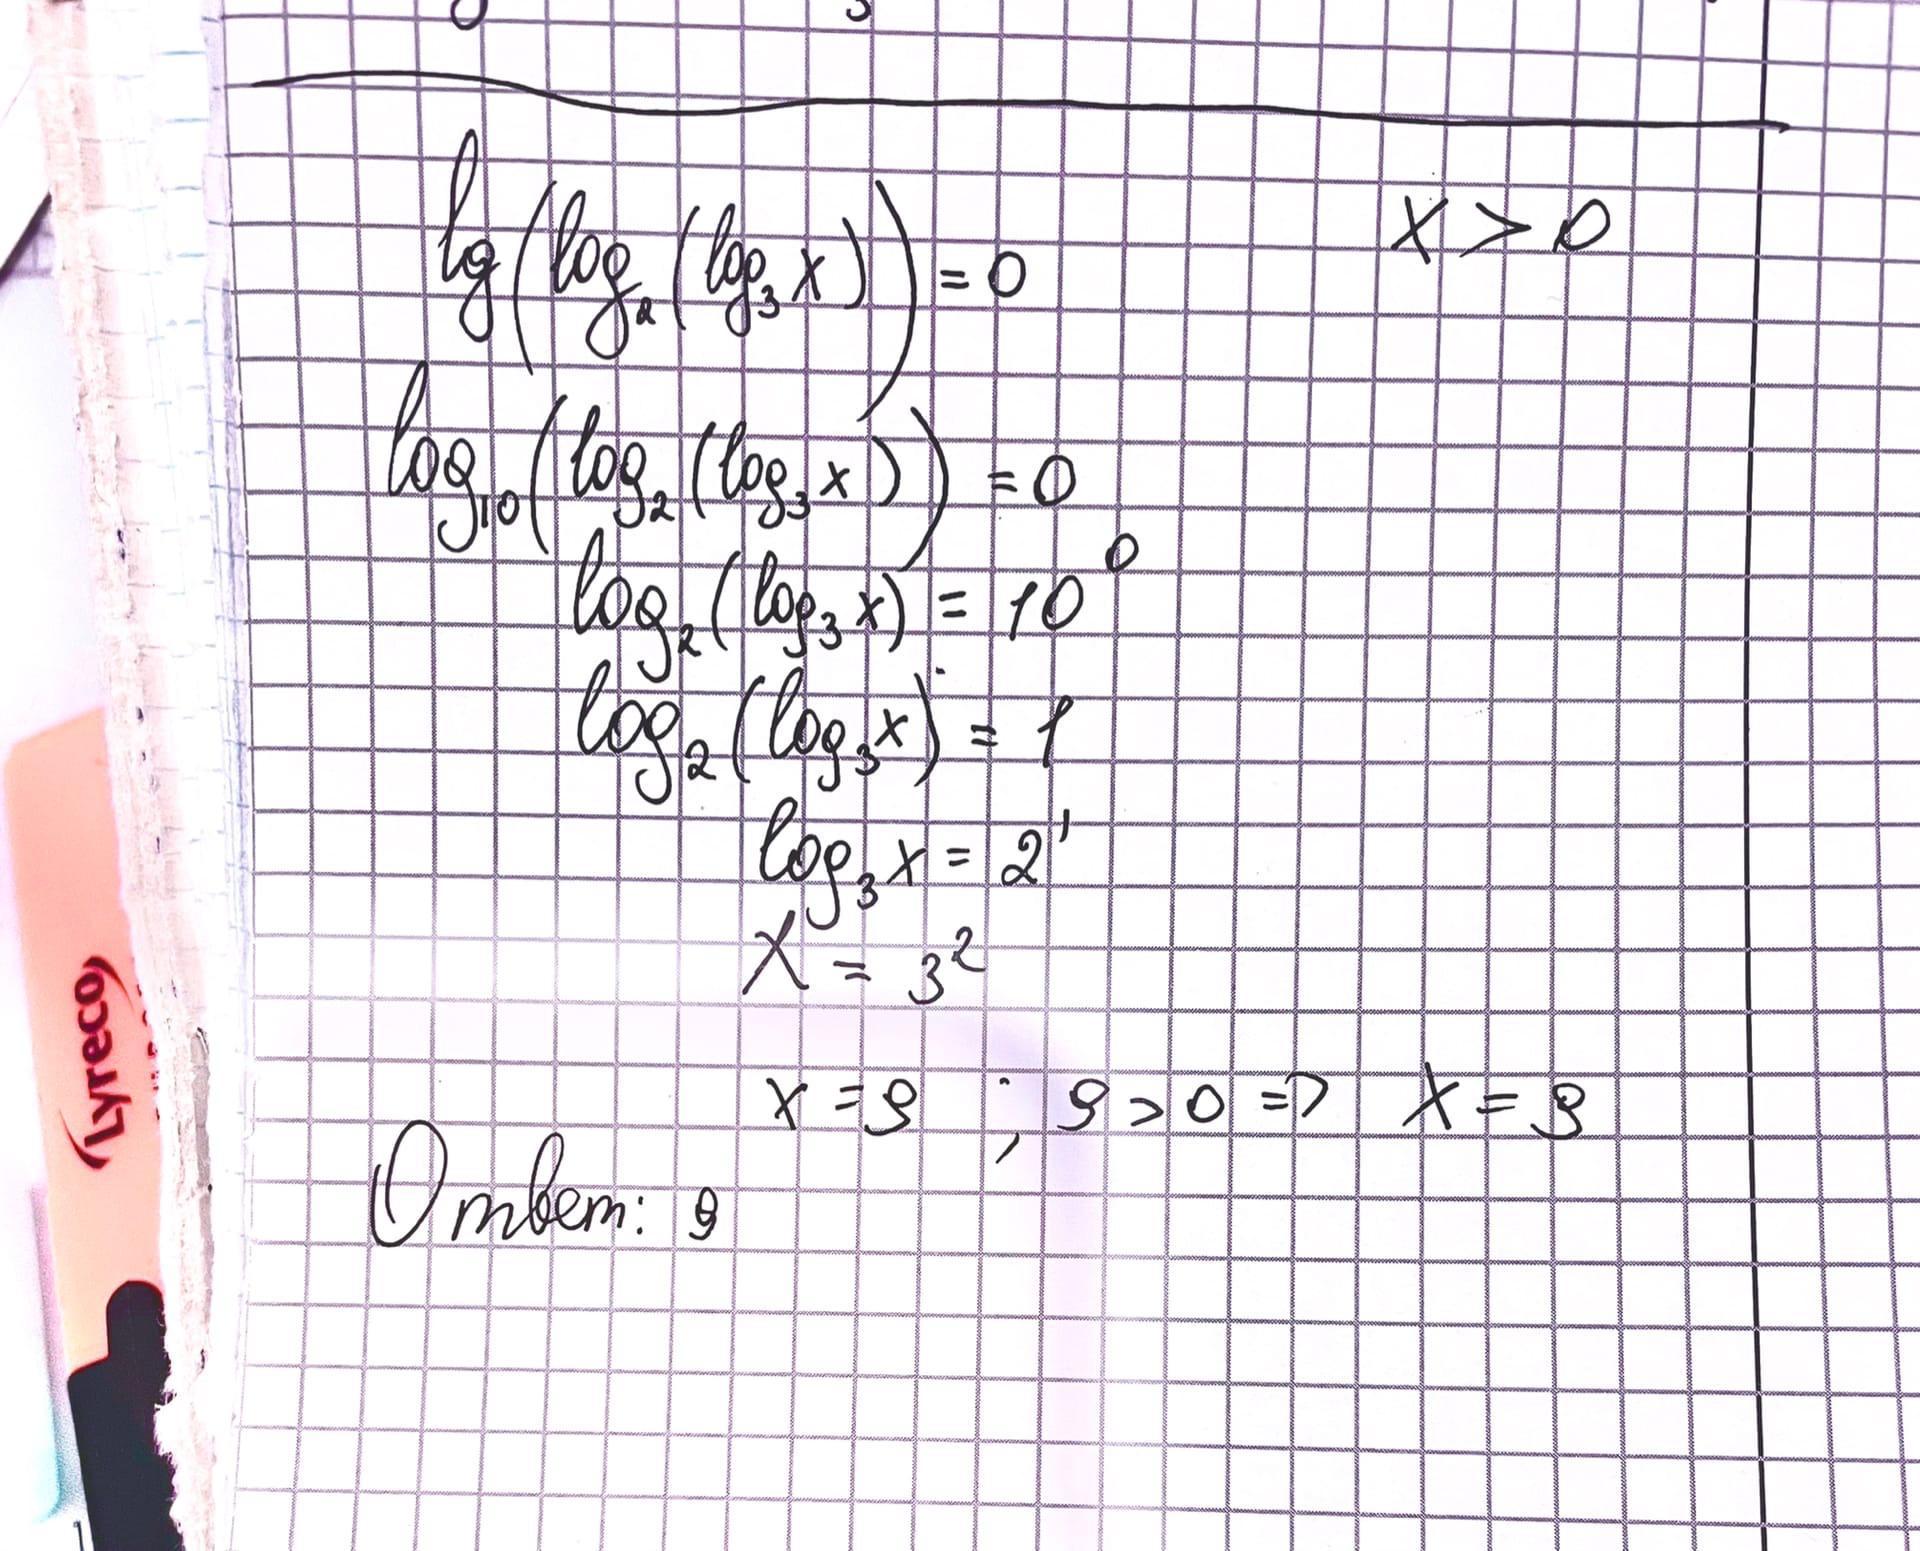 lg(log₂(log₃x))=0
x > 0
log₁₀(log₂(log₃x))=0
log₂(log₃x) = 10⁰
log₂(log₃x) = 1
log₃x = 2¹
x = 3²
x = 9 ; 9 > 0 => x = 9
Ответ: 9
(Lyreco)